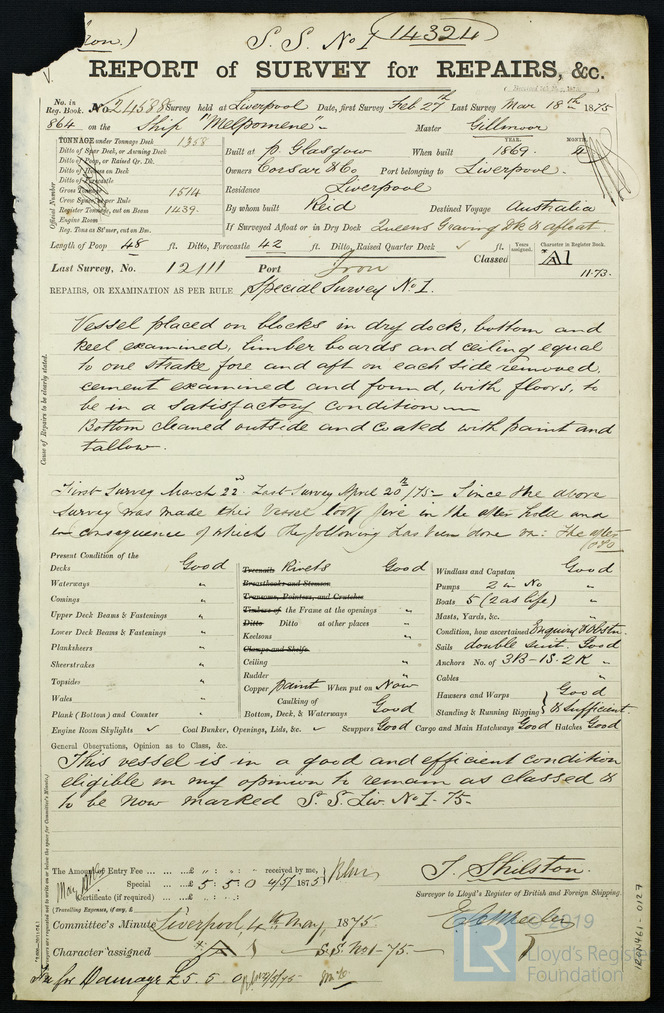 S. S. No 1 14324
REPORT of SURVEY for REPAIRS, &c.
No. in Reg. Book. No 24588 Survey held at Liverpool Date, first Survey Feb 27th Last Survey Mar 18th 1875
864 on the Ship "Melpomene" Master Gillmoor
TONNAGE under Tonnage Deck 1358
Ditto of Spar Deck, or Awning Deck
Ditto of Poop, or Raised Qr. Dk.
Ditto of Houses on Deck
Ditto of Forecastle
Gross Tonnage 1514
Crew Space, per Rule
Register Tonnage, cut on Beam 1439.
Engine Room
Reg. Tons as St'mer, cut on Bm.
Official Number
Built at P. Glasgow When built YEAR. 1869. MONTH. 4
Owners Coesar & Co. Port belonging to Liverpool.
Residence Liverpool
By whom built Reid Destined Voyage Australia
If Surveyed Afloat or in Dry Dock Queens Graving Dk & afloat.
Length of Poop 48 ft. Ditto, Forecastle 42 ft. Ditto, Raised Quarter Deck ✓ ft.
Last Survey, No. 12111 Port Iron Classed Years assigned. Character in Register Book. A1
11.73.
REPAIRS, OR EXAMINATION AS PER RULE Special Survey No 1.
Cause of Repairs to be clearly stated.
Vessel placed on blocks in dry dock, bottom and
keel examined, limber boards and ceiling equal
to one strake fore and aft on each side removed,
cement examined and found, with floors, to
be in a satisfactory condition
Bottom cleaned outside and coated with paint and
tallow.
First Survey March 22nd Last Survey April 20th/75 - Since the above
survey was made this vessel took fire in the after hold and
in consequence of which the following has been done viz: The after
Present Condition of the
Decks Good
Waterways "
Comings "
Upper Deck Beams & Fastenings "
Lower Deck Beams & Fastenings "
Planksheers "
Sheerstrakes "
Topsides "
Wales "
Plank (Bottom) and Counter "
Treenails Rivets Good
Breasthooks and Stemson
Transoms, Pointers, and Crutches
Timbers of the Frame at the openings "
Ditto Ditto at other places "
Keelsons "
Clamps and Shelfs
Ceiling "
Rudder "
Copper Paint When put on Now
Caulking of Bottom, Deck, & Waterways Good
Windlass and Capstan Good
Pumps 2 in No "
Boats 5 (2 as life) "
Masts, Yards, &c. "
Condition, how ascertained Enquiry & Obstn.
Sails double suit. Good
Anchors No. of 3B-1S.2K "
Cables "
Hawsers and Warps Good
Standing & Running Rigging & Sufficient
Engine Room Skylights ✓ Coal Bunker, Openings, Lids, &c. ✓ Scuppers Good Cargo and Main Hatchways Good Hatches Good
General Observations, Opinion as to Class, &c.
This vessel is in a good and efficient condition
eligible in my opinion to remain as classed &
to be now marked S. S. Liv. No 1-75-
The Amount of Entry Fee ... £ " : " : " received by me,
Special ... £ 5 : 5 : 0 4/5/ 1875
Certificate (if required) ... £
(Travelling Expenses, if any, £
T. Shilston.
Surveyor to Lloyd's Register of British and Foreign Shipping.
Committee's Minute Liverpool, 4th May, 1875
Character assigned S.S. No 1-75-
Fee for Damage £5. 5. 0
IRON461-0127
© 2019
LR Lloyd's Register
Foundation